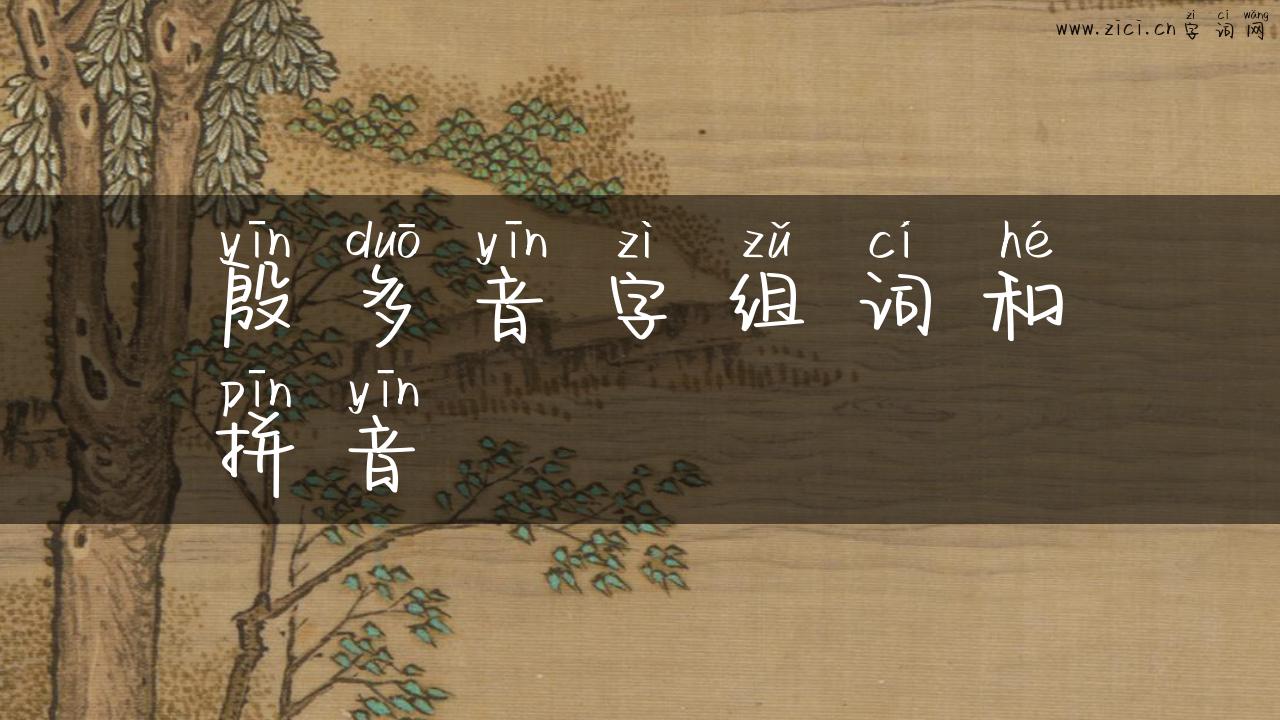 zì cí wǎng
www.zici.cn 字词网
yīn duō yīn zì zǔ cí hé
殷多音字组词和
pīn yīn
拼音